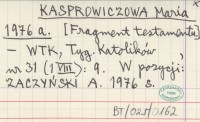 KASPROWICZOWA Maria
1976 a. [Fragment testamentu]
– WTK, Tyg. Katolików,
nr 31 (1 VIII): 9. W pozycji:
ZACZYŃSKI A. 1976 s.
BT/025/0162